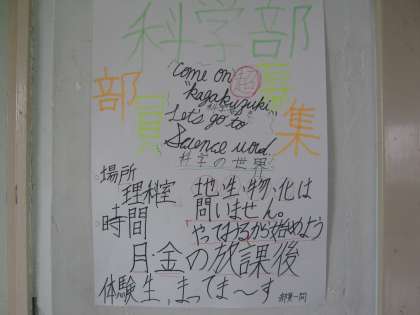 科学部
部員募集
come on 超
"kagakuzuki"
科学好き
Let's go to
Science world.
科学の世界
場所
理科室
地、生、物、化は
問いません。
時間
やってみるから始めよう
月・金の放課後
体験生、まってま〜す
部員一同